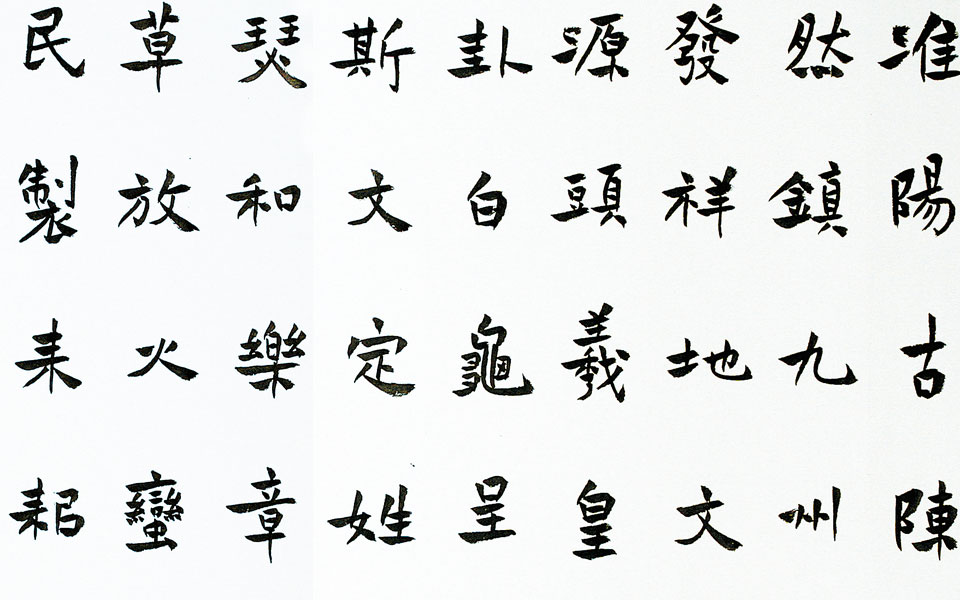 淮陽古陳
然鎮九州
發祥地文
源頭羲皇
卦白龜呈
斯文定姓
瑟和樂章
草放火蠻
民製耒耜